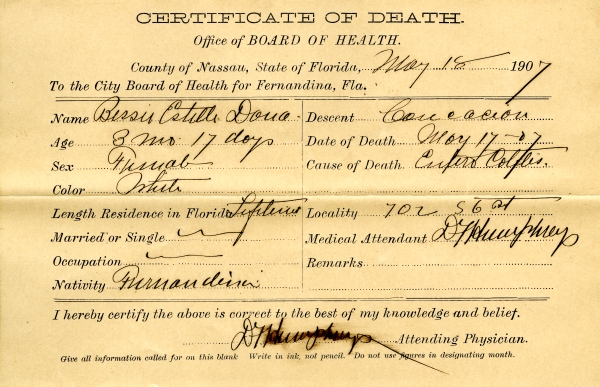 CERTIFICATE OF DEATH.
Office of BOARD OF HEALTH.
County of Nassau, State of Florida, May 18 1907
To the City Board of Health for Fernandina, Fla.
Name Bessie Estelle Dona
Age 3 mo 17 days
Sex Female
Color White
Length Residence in Florida Lifetime
Married or Single
Occupation
Nativity Fernandina
Descent Caucasion
Date of Death May 17-07
Cause of Death Entero Colitis.
Locality 702 S 6 st
Medical Attendant D. Humphreys
Remarks
I hereby certify the above is correct to the best of my knowledge and belief.
Humphreys Attending Physician.
Give all information called for on this blank Write in ink, not pencil. Do not use figures in designating month.